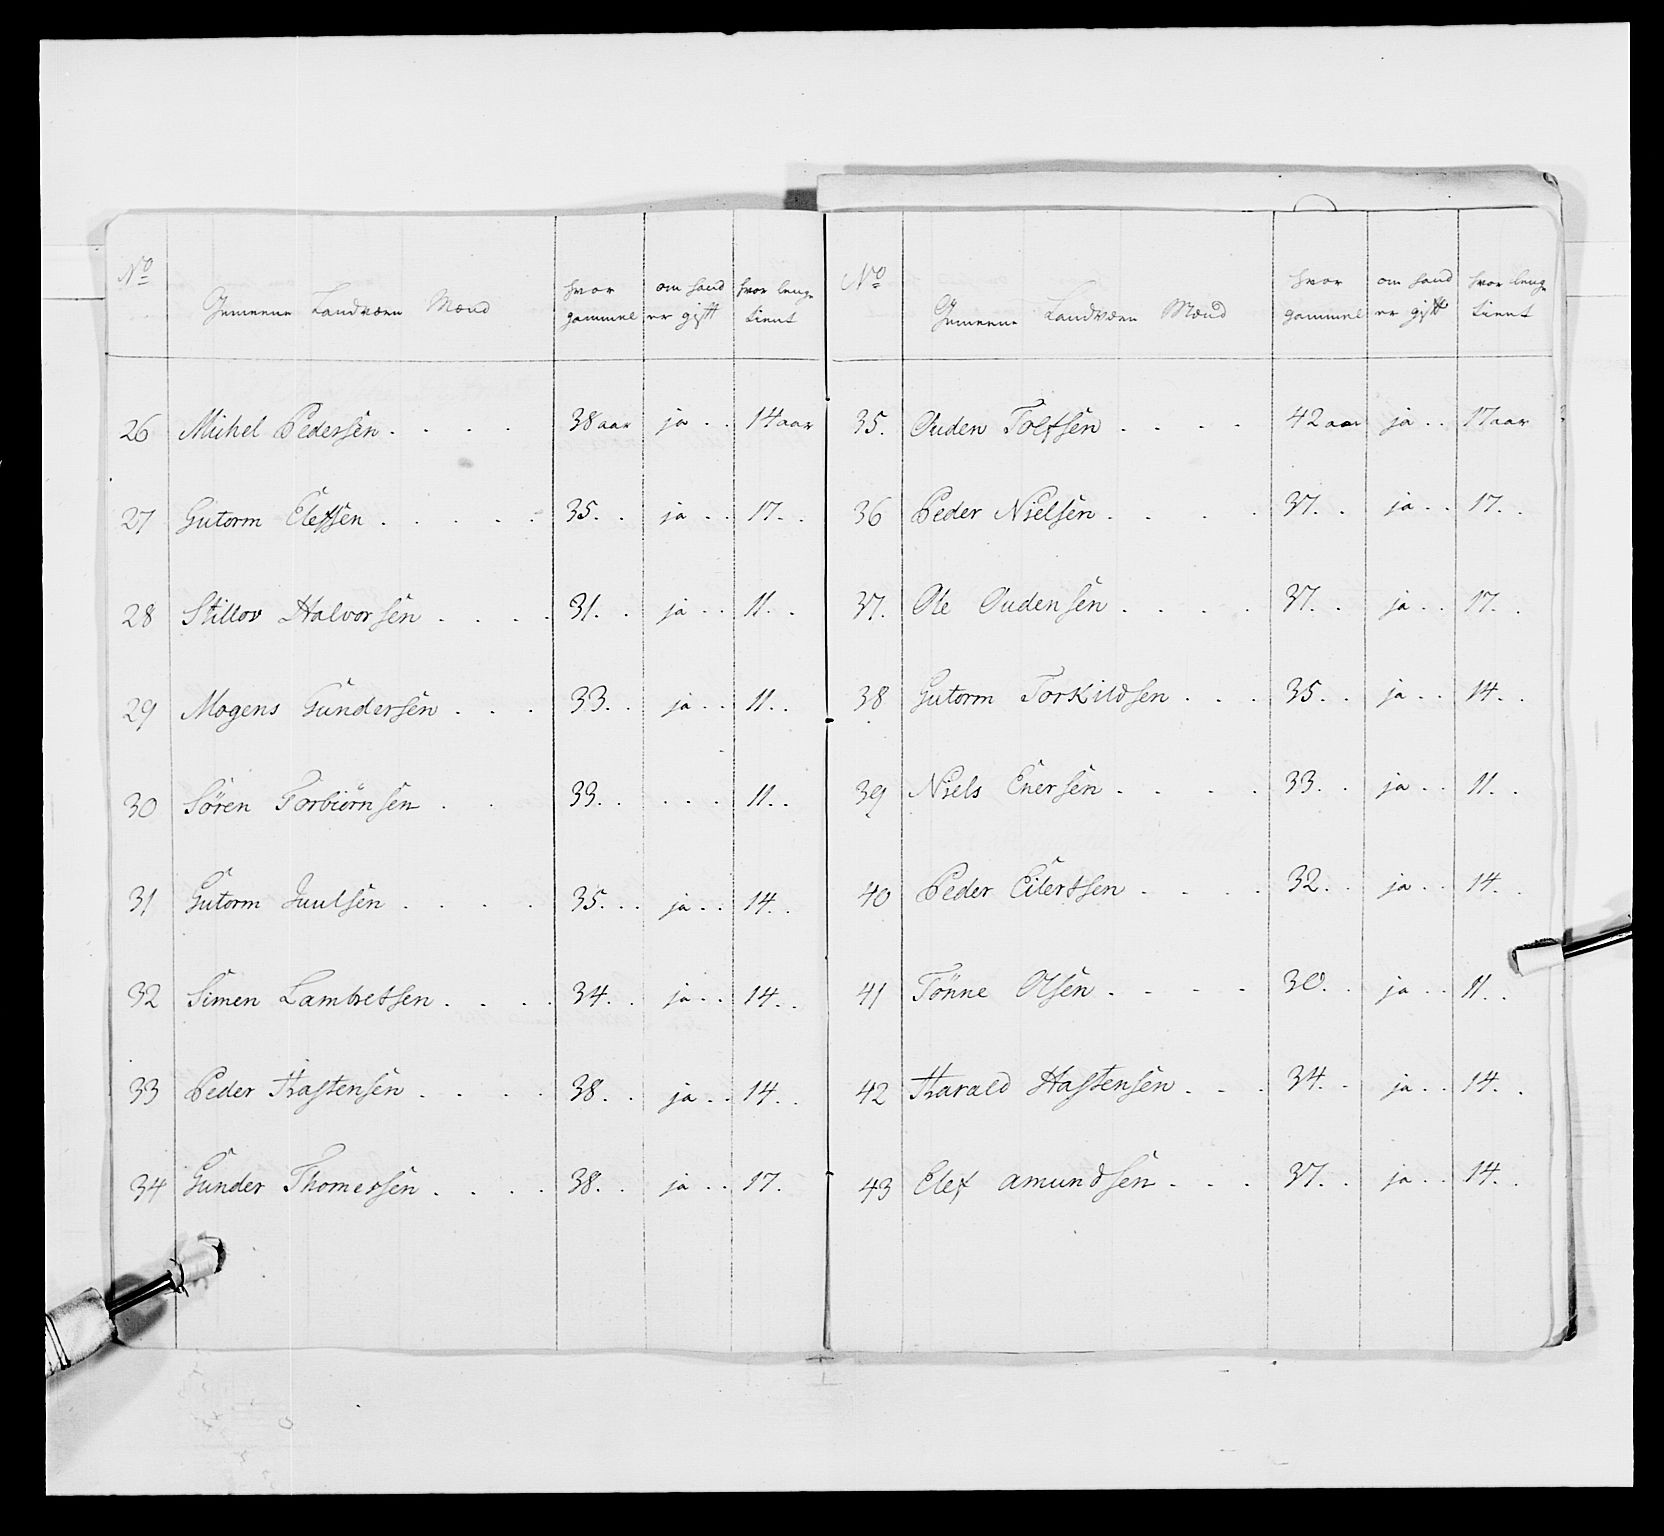 No Gemeene Landværn Mænd hvor gammel om hand er gift hvor lenge tient
26 Michel Pedersen . . . . 38 aar ja . . 14 aar
27 Gutorm Elefsen . . . . . 35. . ja . . 17. .
28 Stillov Halvorsen . . . . 31. . ja . . 11. .
29 Mogens Gundersen . . . 33. . ja . . 11. .
30 Sören Torbiörnsen . . 33. . . . . 11. .
31 Gutorm Juulsen . . . . 35. . . ja . . 14. .
32 Simen Lambretsen . . . . 34. . ja . . 14. .
33 Peder Thastensen . . . . 38. . ja . . 14. .
34 Gunder Thomessen . . . . 38. . ja . . 17.
No Gemeene Landværn Mænd hvor gammel om hand er gift hvor lenge tient
35. Ouden Tolfsen . . . . 42 aar ja . . 17 aar
36 Peder Nielsen . . . . 37. . ja . . 17. .
37. Ole Oudensen . . . . 37. . ja . . 17. .
38 Gutorm Torkildsen . . . 35. . ja . . 14. .
39 Niels Enersen . . . . 33. . ja . . 11. .
40 Peder Eilertsen . . . . 32. . ja . . 14. .
41 Tönne Olsen . . . . 30. . ja . . 11. .
42 Tharald Hastensen . . . 34. . ja . . 14. .
43 Elef amundsen . . . 37. . ja . . 14. .